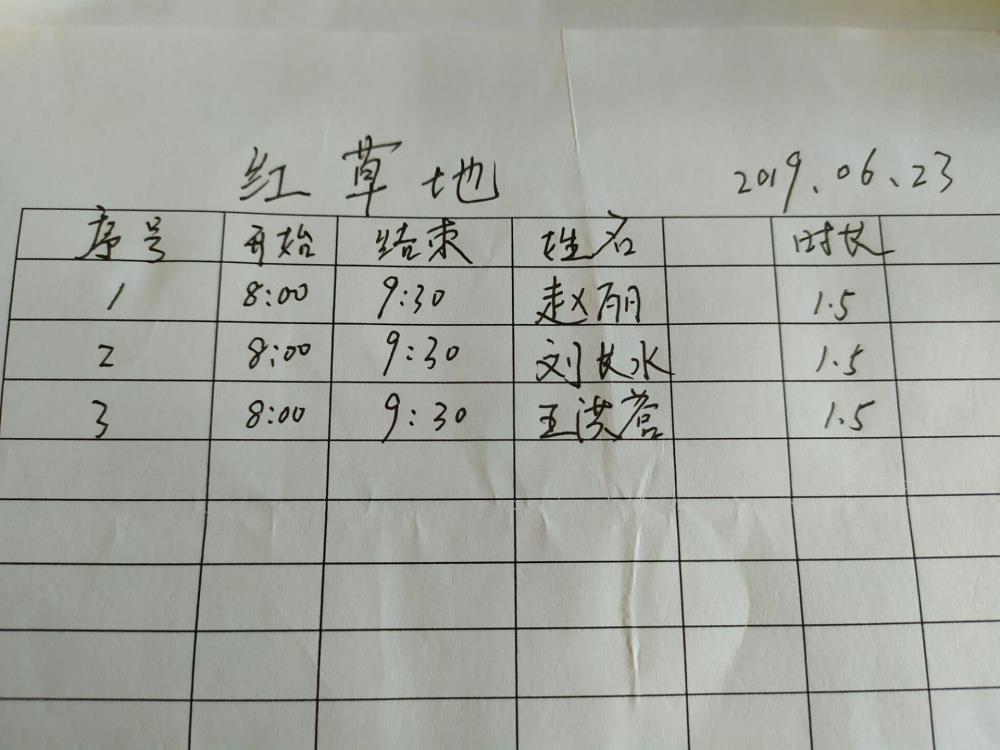 红草地 2019.06.23
序号 开始 结束 姓名 时长
1 8:00 9:30 赵丽 1.5
2 8:00 9:30 刘长水 1.5
3 8:00 9:30 王洪 1.5